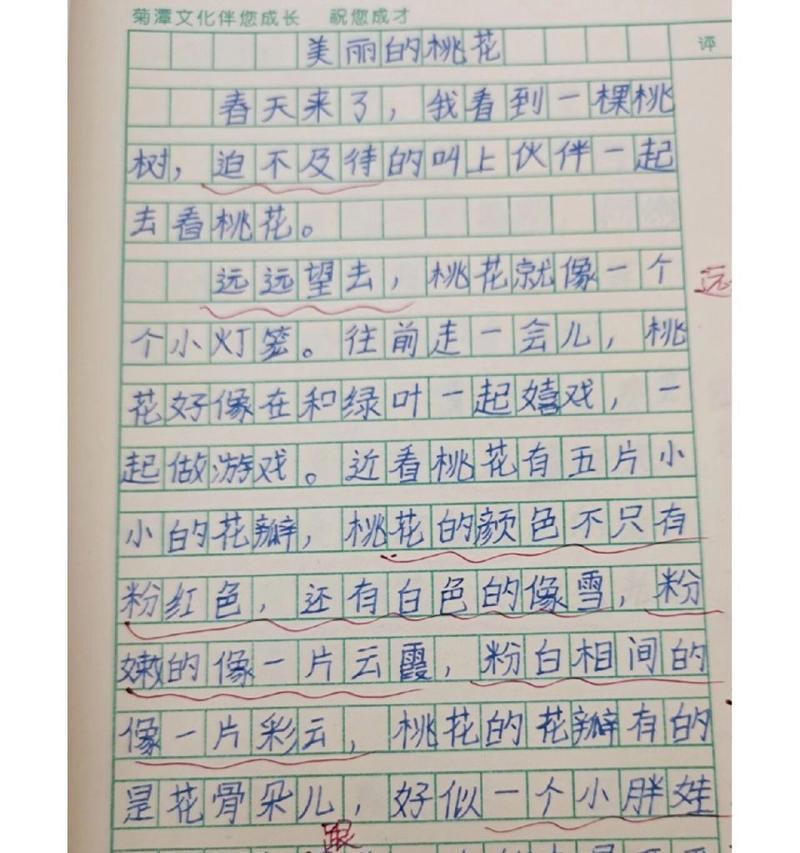 菊潭文化伴您成长 祝您成才
评
美丽的桃花
春天来了，我看到一棵桃
树，迫不及待的叫上伙伴一起
去看桃花。
远远望去，桃花就像一个
远
个小灯笼。往前走一会儿，桃
花好像在和绿叶一起嬉戏，一
起做游戏。近看桃花有五片小
小的花瓣，桃花的颜色不只有
粉红色，还有白色的像雪，粉
嫩的像一片云霞，粉白相间的
像一片彩云，桃花的花瓣有的
是花骨朵儿，好似一个小胖娃